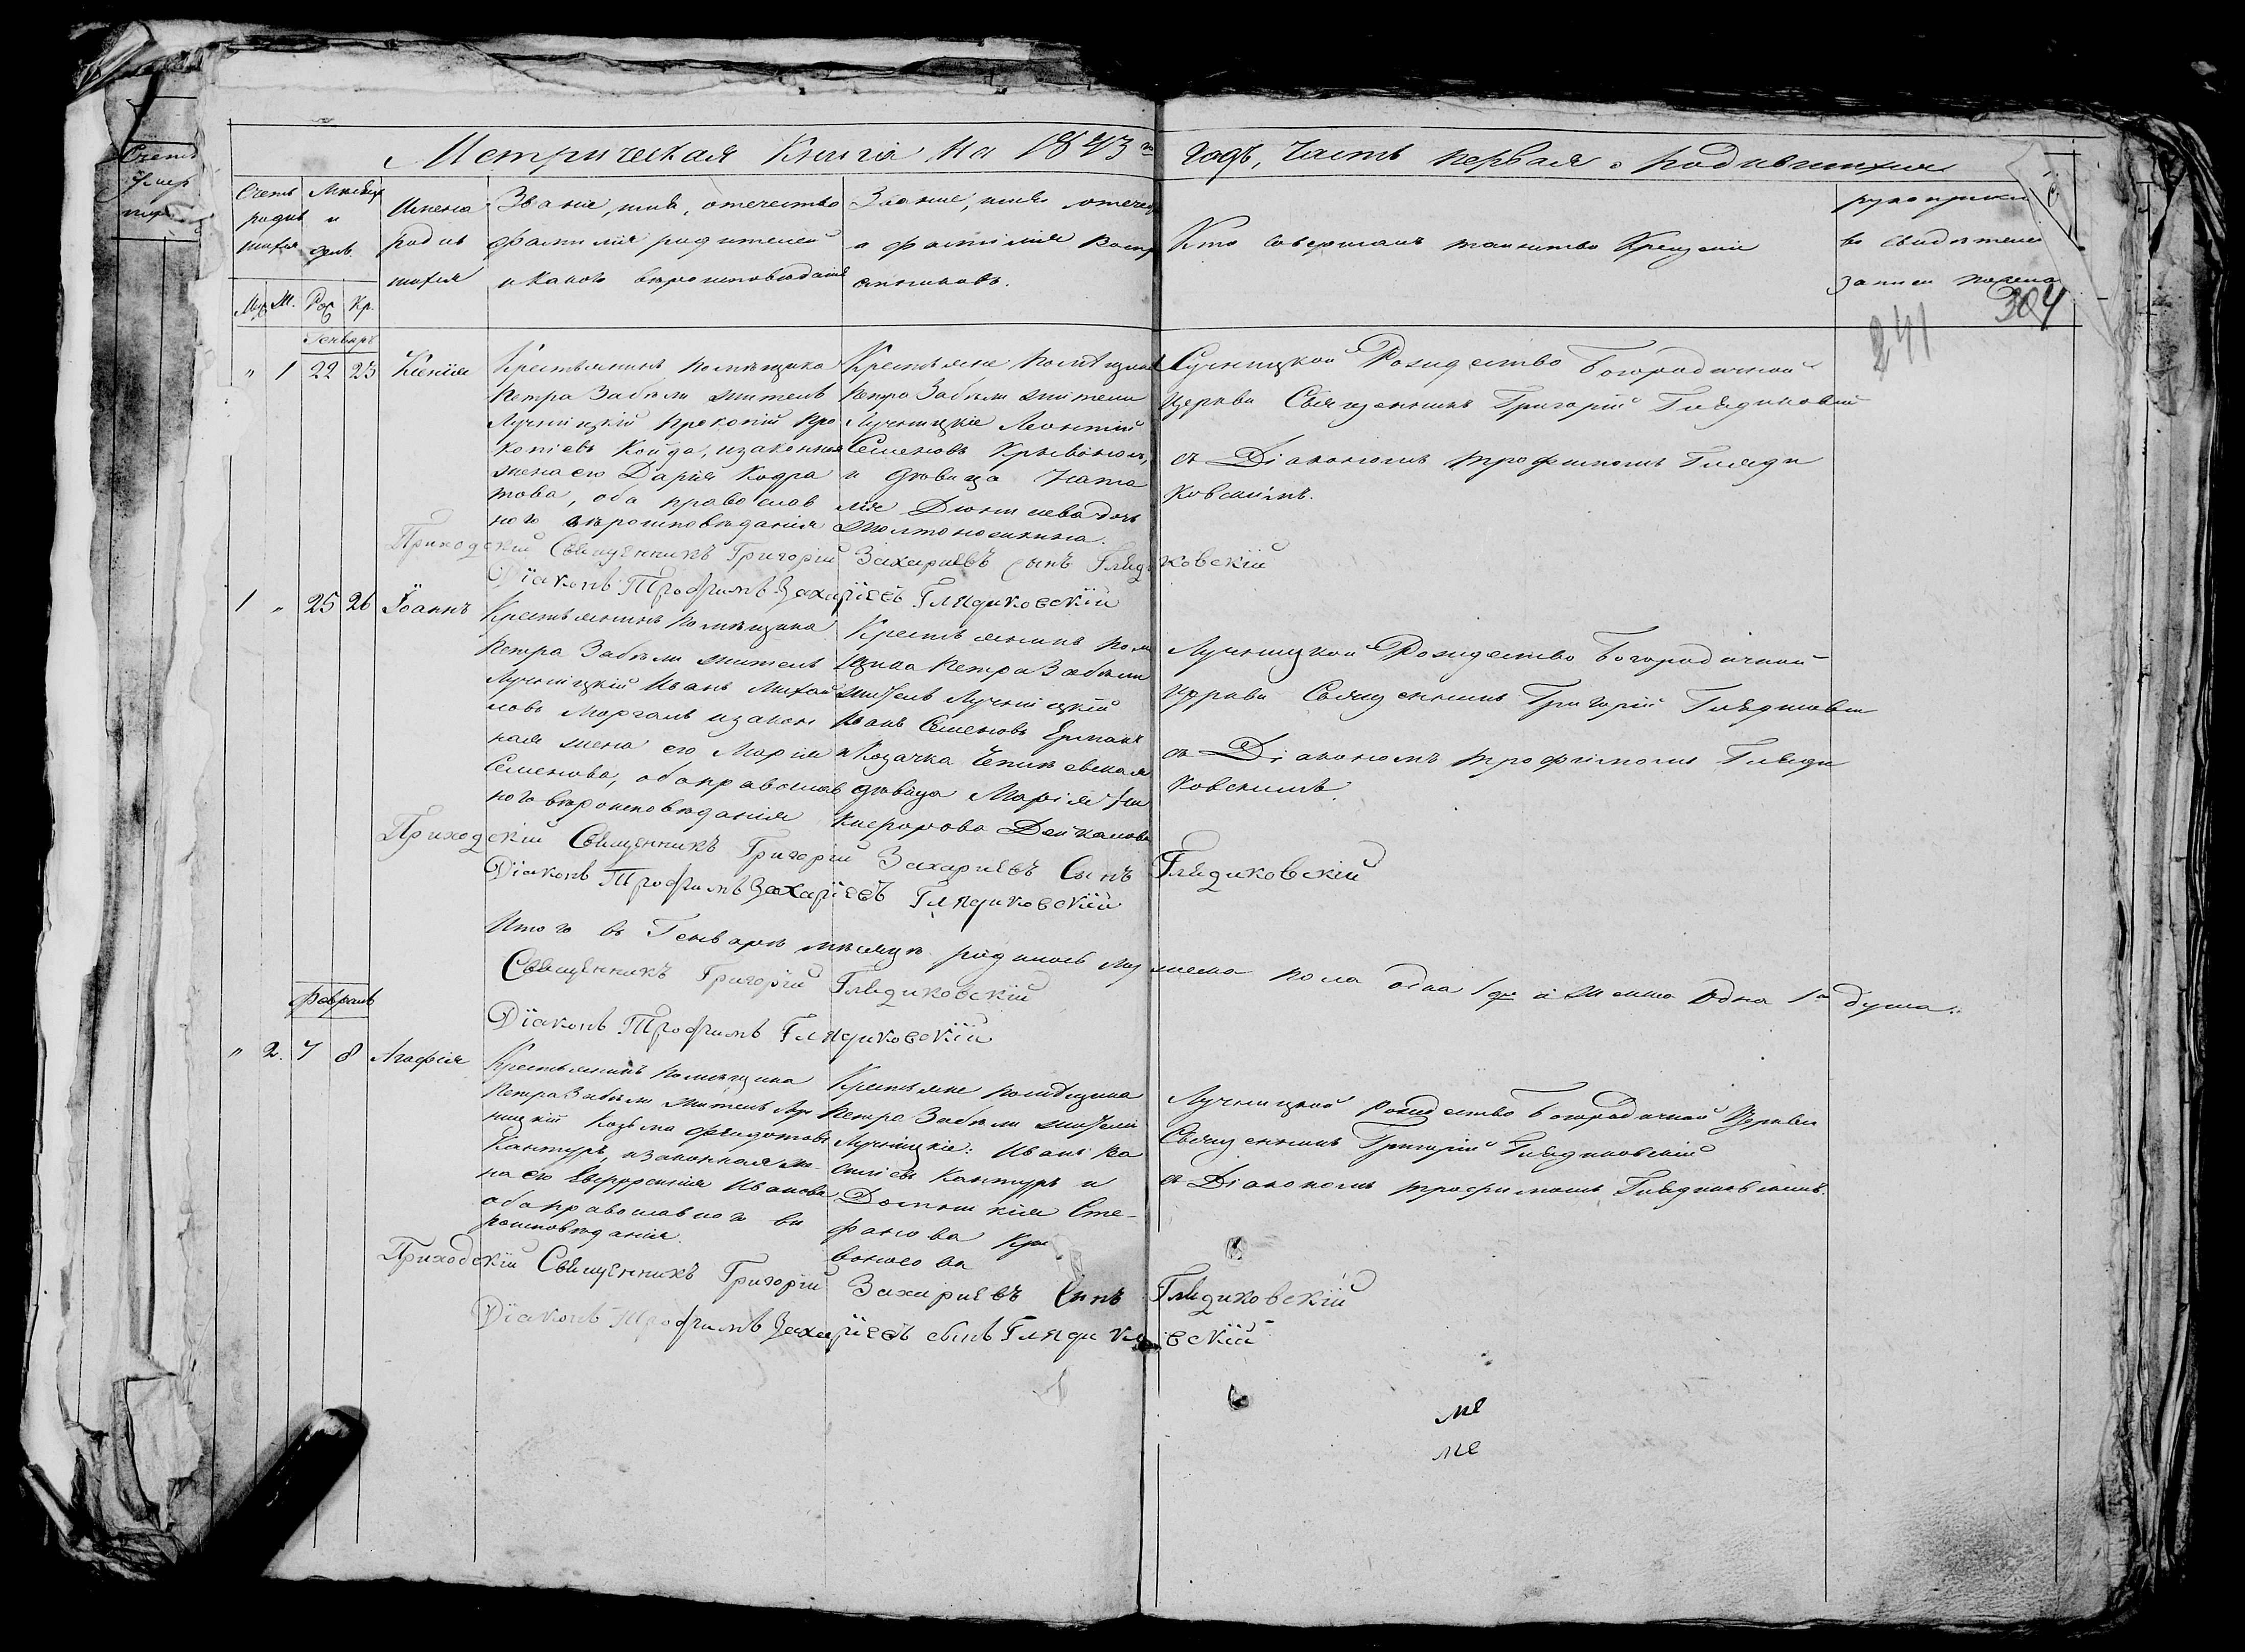 Счетъ
умер
Метрическая Книга на 1843й годъ, Часть первая о родившихся
Счетъ родив шихся
Месяцъ и день
Имена родив шихся
Званіе, имя, отечество фамилія родителей и какого вероисповеданія
Званіе, имя отечес и фамилія воспр емниковъ.
Кто совершалъ таинство Крещенія
рукоприкл во свидетел записи по жела
304
241
Му. Ж. Рж Кр.
Генварь
" 1 22 23 Ксенія
Крестьянинъ помещика
Петра Забелы житель
Лучницкій Прокопій Про
копіевъ Койда, изаконная
жена его Дарія Кодра
това, оба православ
ного вероисповеданія
Крестьяне помещика
Петра Забелы жители
Лучницкіе Леонтій
Семеновъ Кривоносъ,
и девица Ната
лія дочь
Рождество Богородичной
Церкви Священникъ Григорій Глядиковскій
съ Діакономъ Трофимомъ Гляди
ковскимъ.
Приходскій Священникъ Григорій Захаріевъ сынъ Глядиковскій
Діаконъ Трофимъ Захаріевъ Глядиковскій
1 " 25 26 Іоаннъ
Крестьянинъ помещика
Петра Забелы житель
Лучницкій Иванъ Михай
ловъ Моргаль изакон
ная жена его Марія
Семенова, оба православ
ного вероисповеданія
Крестьянинъ поме
щика Петра Забелы
житель Лучницкій
Иванъ Семеновъ Ермакъ
и Козачка
девица Марія Ни
кифорова
Лучницкой Рождество Богородичной
Церкви Священникъ Григорій Глядиковскі
съ Діакономъ Трофимомъ Гляди
ковскимъ.
Приходскій Священникъ Григорій Захаріевъ Сынъ Глядиковскій
Діаконъ Трофимъ Захаріевъ Глядиковскій
Итого въ Генваре месяце родилось Мужеска пола одна 1 а женска Одна 1а душа.
Священникъ Григорій Глядиковскій
Діаконъ Трофимъ Глядиковскій
Февраль
" 2. 7 8 Агафія
Крестьянинъ помещика
Петра Забелы житель Луч
ницкій Козьма Федотовъ
Кантуръ, изаконная же
на его Евфросинія Иванова
оба православного ве
роисповеданія.
Крестьяне помещика
Петра Забелы жители
Лучницкіе: Иванъ Ва
силіевъ Кантуръ и
Домникія Сте-
фанова Кри
воносова
Лучницкой Рождество Богородичной Церкви
Священникъ Григорій Глядиковскій
съ Діакономъ Трофимомъ Глядиковскимъ.
Приходскій Священникъ Григорій Захаріевъ Сынъ Глядиковскій
Діаконъ Трофимъ Захаріевъ сынъ Глядиковскій